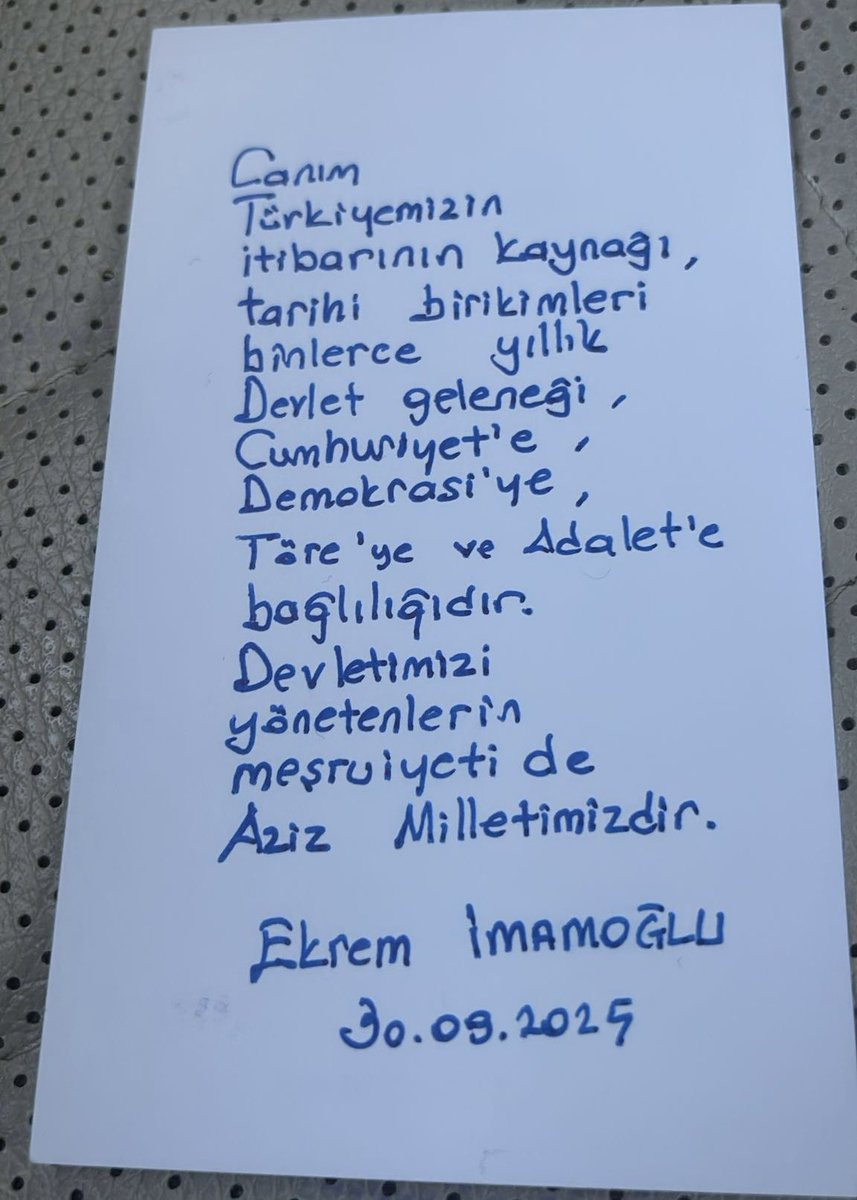 Canım
Türkiyemizin
itibarının kaynağı,
tarihi birikimleri
binlerce yıllık
Devlet geleneği,
Cumhuriyet'e,
Demokrasi'ye,
Töre'ye ve Adalet'e
bağlılığıdır.
Devletimizi
yönetenlerin
meşruiyeti de
Aziz Milletimizdir.
Ekrem İMAMOĞLU
30.09.2025